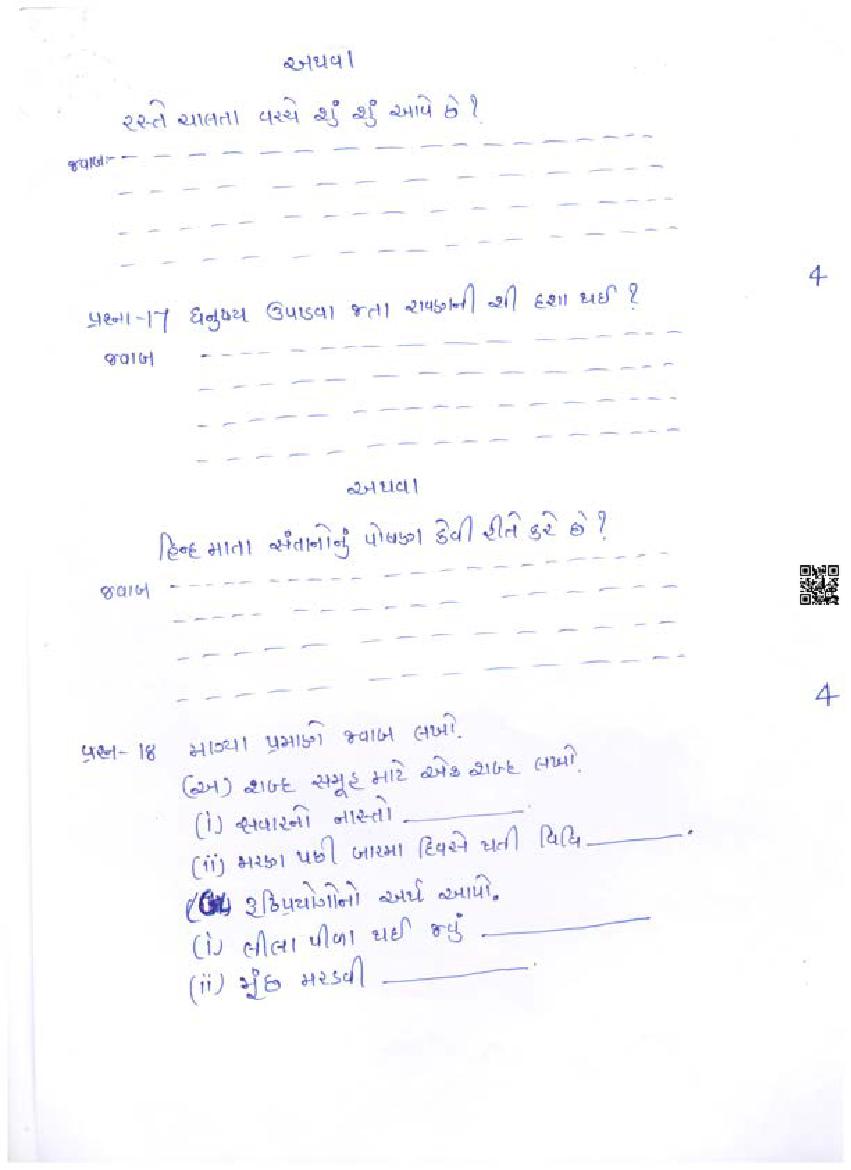 અથવા
રસ્તે ચાલતા વચ્ચે શું શું આવે છે?
જવાબ:-
4
પ્રશ્ના-17 ધનુષ્ય ઉપાડવા જતા રાવણની શી દશા થઈ ?
જવાબ
અથવા
હિન્દ માતા સંતાનોનું પોષણ કેવી રીતે કરે છે?
જવાબ
4
પ્રશ્ન- 18 માગ્યા પ્રમાણે જવાબ લખો.
(અ) શબ્દ સમૂહ માટે એક શબ્દ લખો.
(i) સવારનો નાસ્તો ________.
(ii) મરણ પછી બારમા દિવસે થતી વિધિ ________.
રૂઢિપ્રયોગોનો અર્થ આપો.
(i) લીલા પીળા થઈ જવું ________
(ii) મૂંછ મરડવી ________.